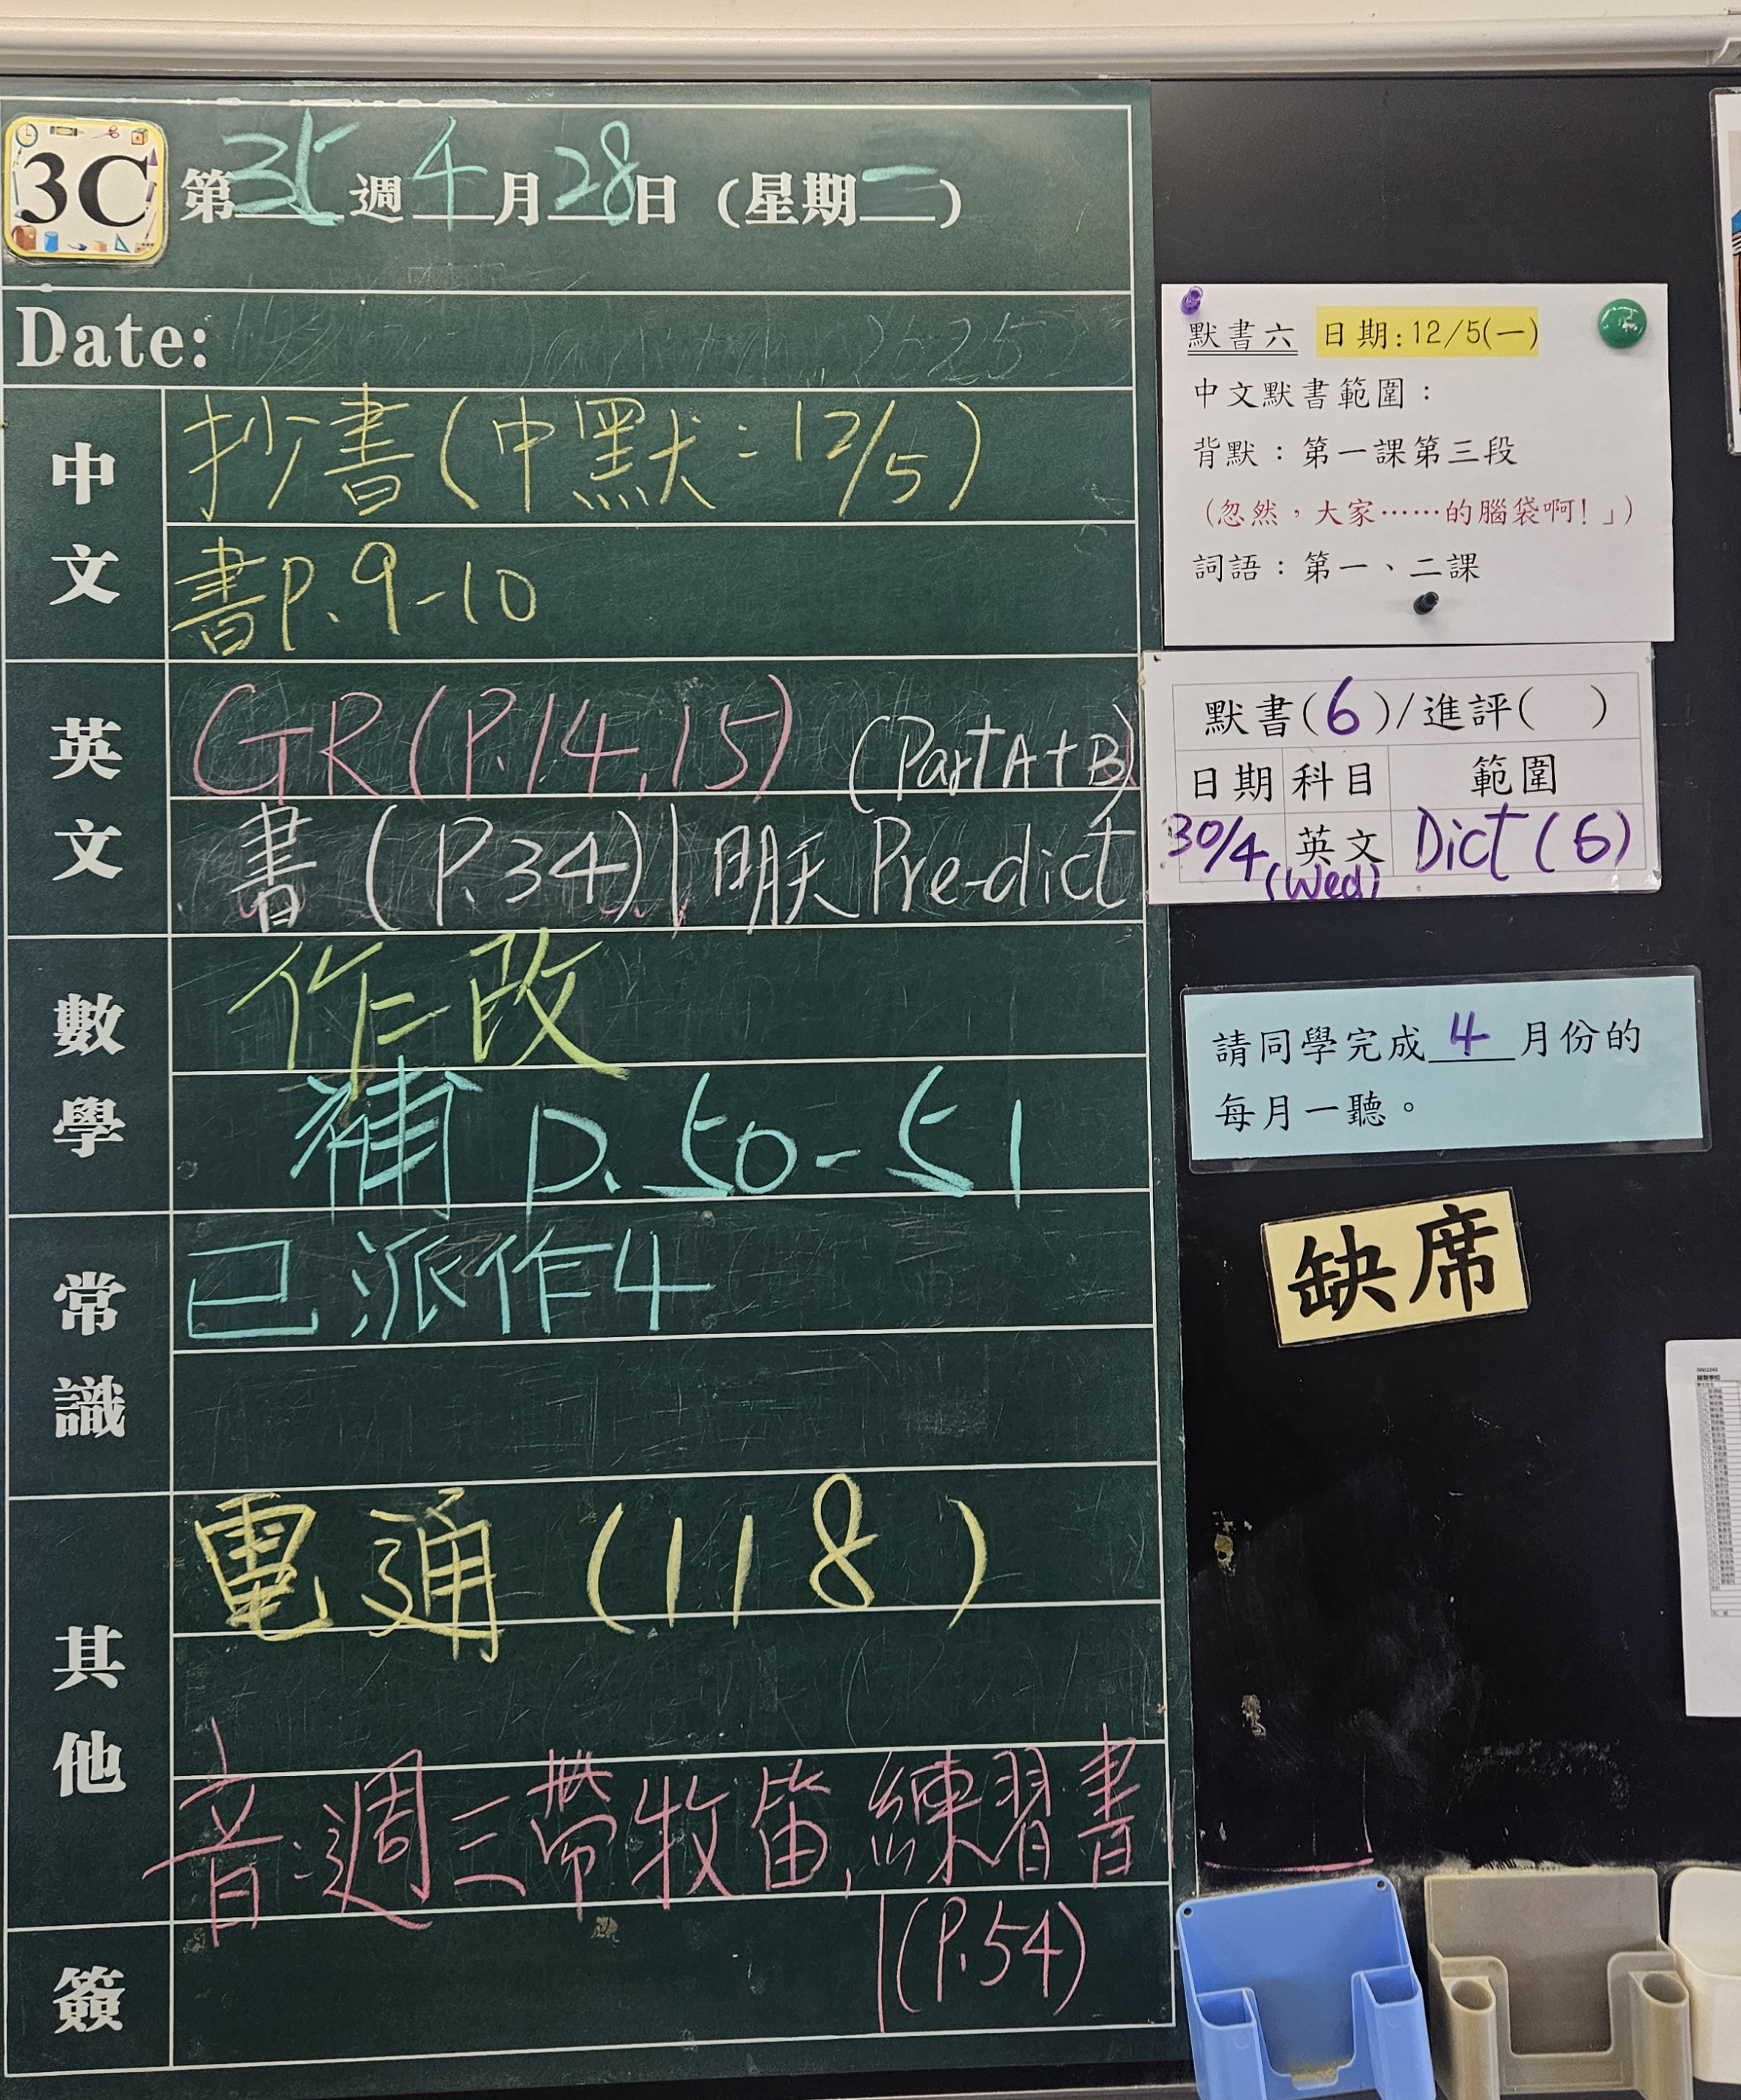 3C 第35週4月28日 (星期一)
Date:
中文
抄書(中默:12/5)
書P.9-10
英文
GR(P.14,15) (Part A+B)
書(P.34)|明天 Pre-dict
數學
作改
補 P.50-51
常識
已派作4
其他
電通(118)
音:週三帶牧笛,練習書
(P.54)
簽
默書六 日期:12/5(一)
中文默書範圍:
背默:第一課第三段
(忽然,大家……的腦袋啊!」)
詞語:第一、二課
默書(6)/進評( )
日期 科目 範圍
30/4 (Wed) 英文 Dict(6)
請同學完成 4 月份的
每月一聽。
缺席